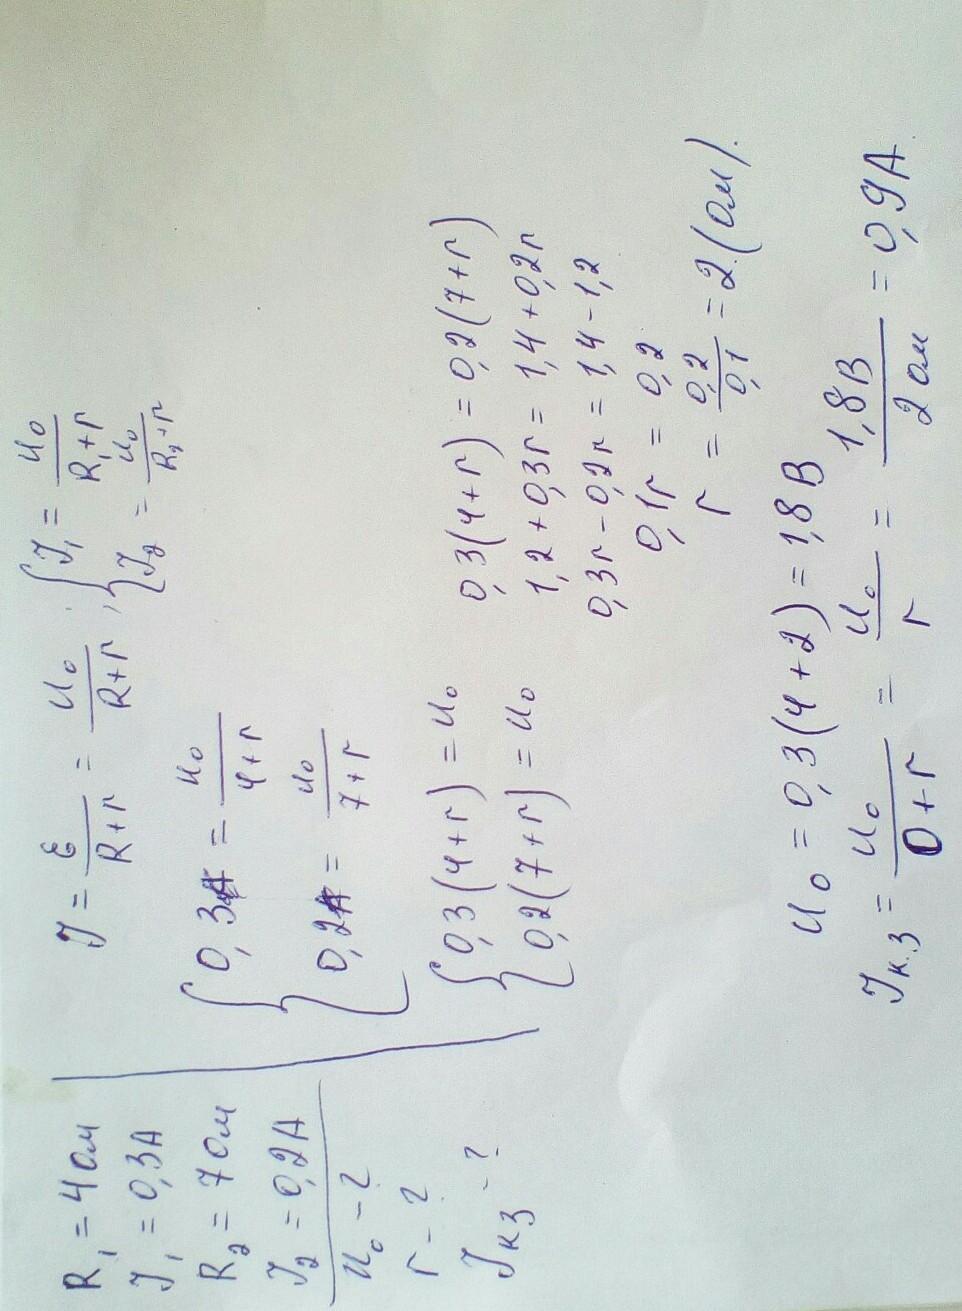 R₁ = 4 Ом
J₁ = 0,3A
R₂ = 7 Ом
J₂ = 0,2A
U₀ - ?
r - ?
Jк3 - ?
J = ε/(R+r) = U₀/(R+r) ; { J₁ = U₀/(R₁+r)
J₂ = U₀/(R₂+r)
{ 0,3 = U₀/(4+r)
0,2 = U₀/(7+r)
{ 0,3(4+r) = U₀
0,2(7+r) = U₀
0,3(4+r) = 0,2(7+r)
1,2 + 0,3r = 1,4 + 0,2r
0,3r - 0,2r = 1,4 - 1,2
0,1r = 0,2
r = 0,2/0,1 = 2 (Ом).
U₀ = 0,3(4+2) = 1,8 В
Jк.3 = U₀/(0+r) = U₀/r = 1,8 В/2 Ом = 0,9A